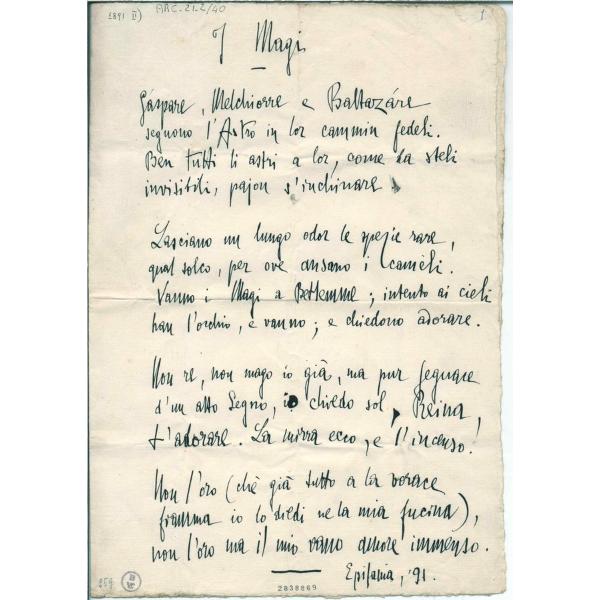 1891 II)
ARC.21.2/40
1
I Magi
Gáspare, Melchiorre e Baltazáre
seguono l'Astro in lor cammin fedeli.
Ben tutti li astri a lor, come da steli
invisibili, pajon s'inchinare.
Lasciano un lungo odor le spezie rare,
qual solco, per ove ansano i caméli.
Vanno i Magi a Betlemme; intento ai cieli
han l'occhio, e vanno; e chiedono adorare.
Non re, non mago io già, ma pur seguace
d'un alto Segno, io chiedo sol, Reina,
t'adorare. La mirra ecco, e l'incenso.
Non l'oro (chè già tutto a la vorace
fiamma io lo diedi ne la mia fucina),
non l'oro ma il mio vano amore immenso.
Epifania, '91.
2838869